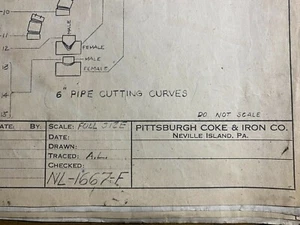 10
11
MALE
12
FEMALE
13
MALE
14
FEMALE
15
6" PIPE CUTTING CURVES
DO NOT SCALE
DATE: BY: SCALE: FULL SIZE
PITTSBURGH COKE & IRON CO.
DATE:
NEVILLE ISLAND, PA.
DRAWN:
TRACED:
CHECKED:
NL-1667-F